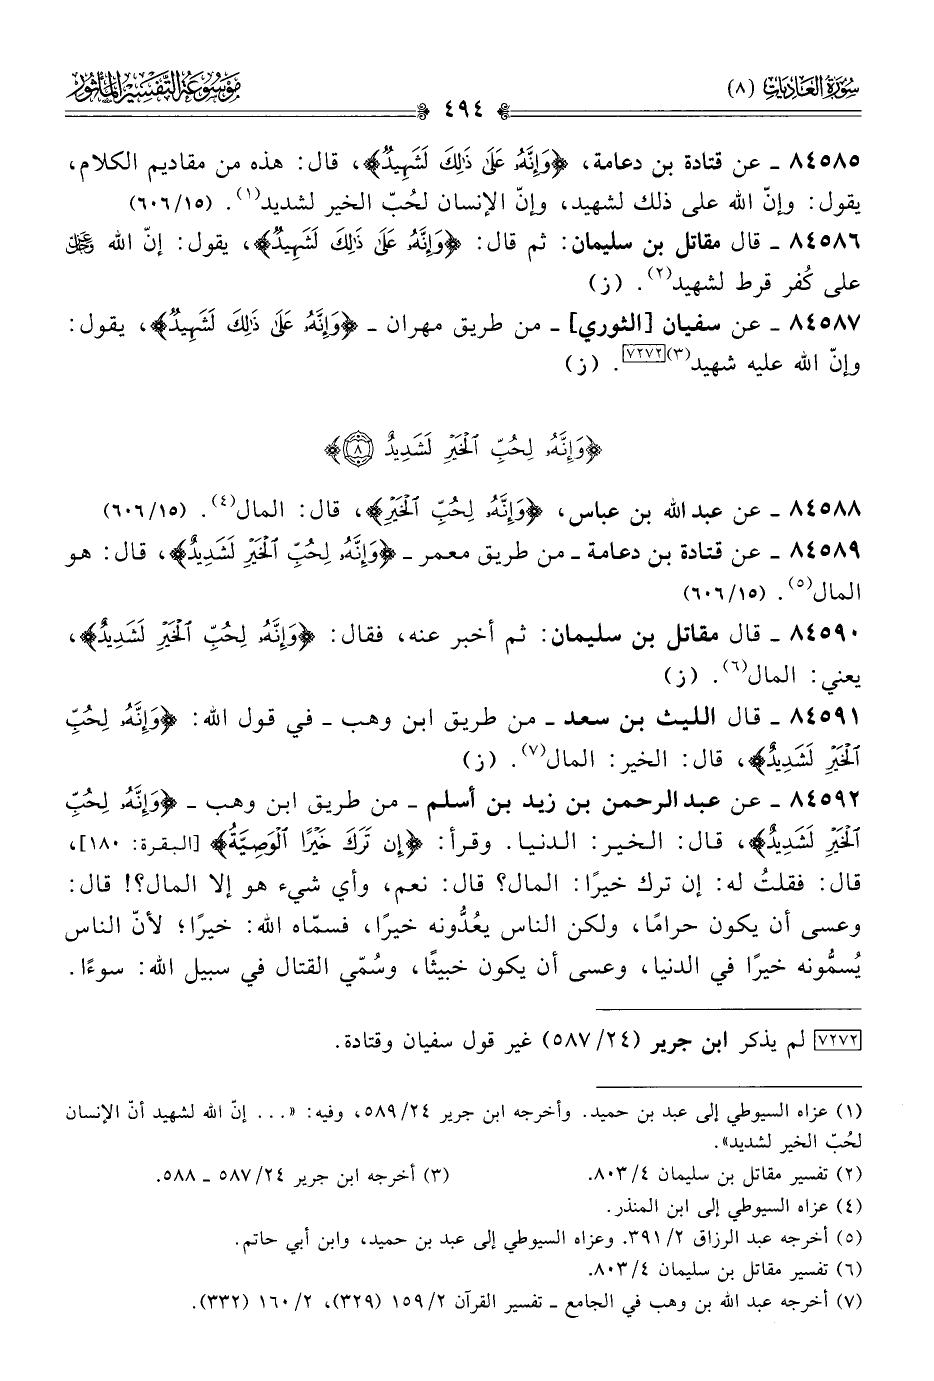 سُورَةُ العَادِيَاتِ (٨)
٤٩٤
مَوْسُوعَةُ التَّفْسِيرِ المَأْثُور
٨٤٥٨٥ ـ عن قتادة بن دعامة، ﴿وَإِنَّهُۥ عَلَىٰ ذَٰلِكَ لَشَهِيدٌ﴾، قال: هذه من مقاديم الكلام،
يقول: وإنّ الله على ذلك لشهيد، وإنّ الإنسان لحُبّ الخير لشديد(١). (٦٠٦/١٥)
٨٤٥٨٦ ـ قال مقاتل بن سليمان: ثم قال: ﴿وَإِنَّهُۥ عَلَىٰ ذَٰلِكَ لَشَهِيدٌ﴾، يقول: إنّ الله ﷿
على كُفر قرط لشهيد(٢). (ز)
٨٤٥٨٧ ـ عن سفيان [الثوري] ـ من طريق مهران ـ ﴿وَإِنَّهُۥ عَلَىٰ ذَٰلِكَ لَشَهِيدٌ﴾، يقول:
وإنّ الله عليه شهيد(٣)[٧٢٧٢]. (ز)
﴿وَإِنَّهُۥ لِحُبِّ ٱلْخَيْرِ لَشَدِيدٌ ۝٨﴾
٨٤٥٨٨ ـ عن عبد الله بن عباس، ﴿وَإِنَّهُۥ لِحُبِّ ٱلْخَيْرِ﴾، قال: المال(٤). (٦٠٦/١٥)
٨٤٥٨٩ ـ عن قتادة بن دعامة ـ من طريق معمر ـ ﴿وَإِنَّهُۥ لِحُبِّ ٱلْخَيْرِ لَشَدِيدٌ﴾، قال: هو
المال(٥). (٦٠٦/١٥)
٨٤٥٩٠ ـ قال مقاتل بن سليمان: ثم أخبر عنه، فقال: ﴿وَإِنَّهُۥ لِحُبِّ ٱلْخَيْرِ لَشَدِيدٌ﴾،
يعني: المال(٦). (ز)
٨٤٥٩١ ـ قال الليث بن سعد ـ من طريق ابن وهب ـ في قول الله: ﴿وَإِنَّهُۥ لِحُبِّ
ٱلْخَيْرِ لَشَدِيدٌ﴾، قال: الخير: المال(٧). (ز)
٨٤٥٩٢ ـ عن عبد الرحمن بن زيد بن أسلم ـ من طريق ابن وهب ـ ﴿وَإِنَّهُۥ لِحُبِّ
ٱلْخَيْرِ لَشَدِيدٌ﴾، قال: الخير: الدنيا. وقرأ: ﴿إِن تَرَكَ خَيْرًا ٱلْوَصِيَّةُ﴾ [البقرة: ١٨٠]،
قال: فقلتُ له: إن ترك خيرًا: المال؟ قال: نعم، وأي شيء هو إلا المال؟! قال:
وعسى أن يكون حرامًا، ولكن الناس يعُدُّونه خيرًا، فسمّاه الله: خيرًا؛ لأنّ الناس
يُسمُّونه خيرًا في الدنيا، وعسى أن يكون خبيثًا، وسُمّي القتال في سبيل الله: سوءًا.
[٧٢٧٢] لم يذكر ابن جرير (٥٨٧/٢٤) غير قول سفيان وقتادة.
(١) عزاه السيوطي إلى عبد بن حميد. وأخرجه ابن جرير ٥٨٩/٢٤، وفيه: «... إنّ الله لشهيد أنّ الإنسان
لحُبّ الخير لشديد».
(٢) تفسير مقاتل بن سليمان ٨٠٣/٤. (٣) أخرجه ابن جرير ٥٨٧/٢٤ ـ ٥٨٨.
(٤) عزاه السيوطي إلى ابن المنذر.
(٥) أخرجه عبد الرزاق ٣٩١/٢. وعزاه السيوطي إلى عبد بن حميد، وابن أبي حاتم.
(٦) تفسير مقاتل بن سليمان ٨٠٣/٤.
(٧) أخرجه عبد الله بن وهب في الجامع ـ تفسير القرآن ١٥٩/٢ (٣٢٩)، ١٦٠/٢ (٣٣٢).